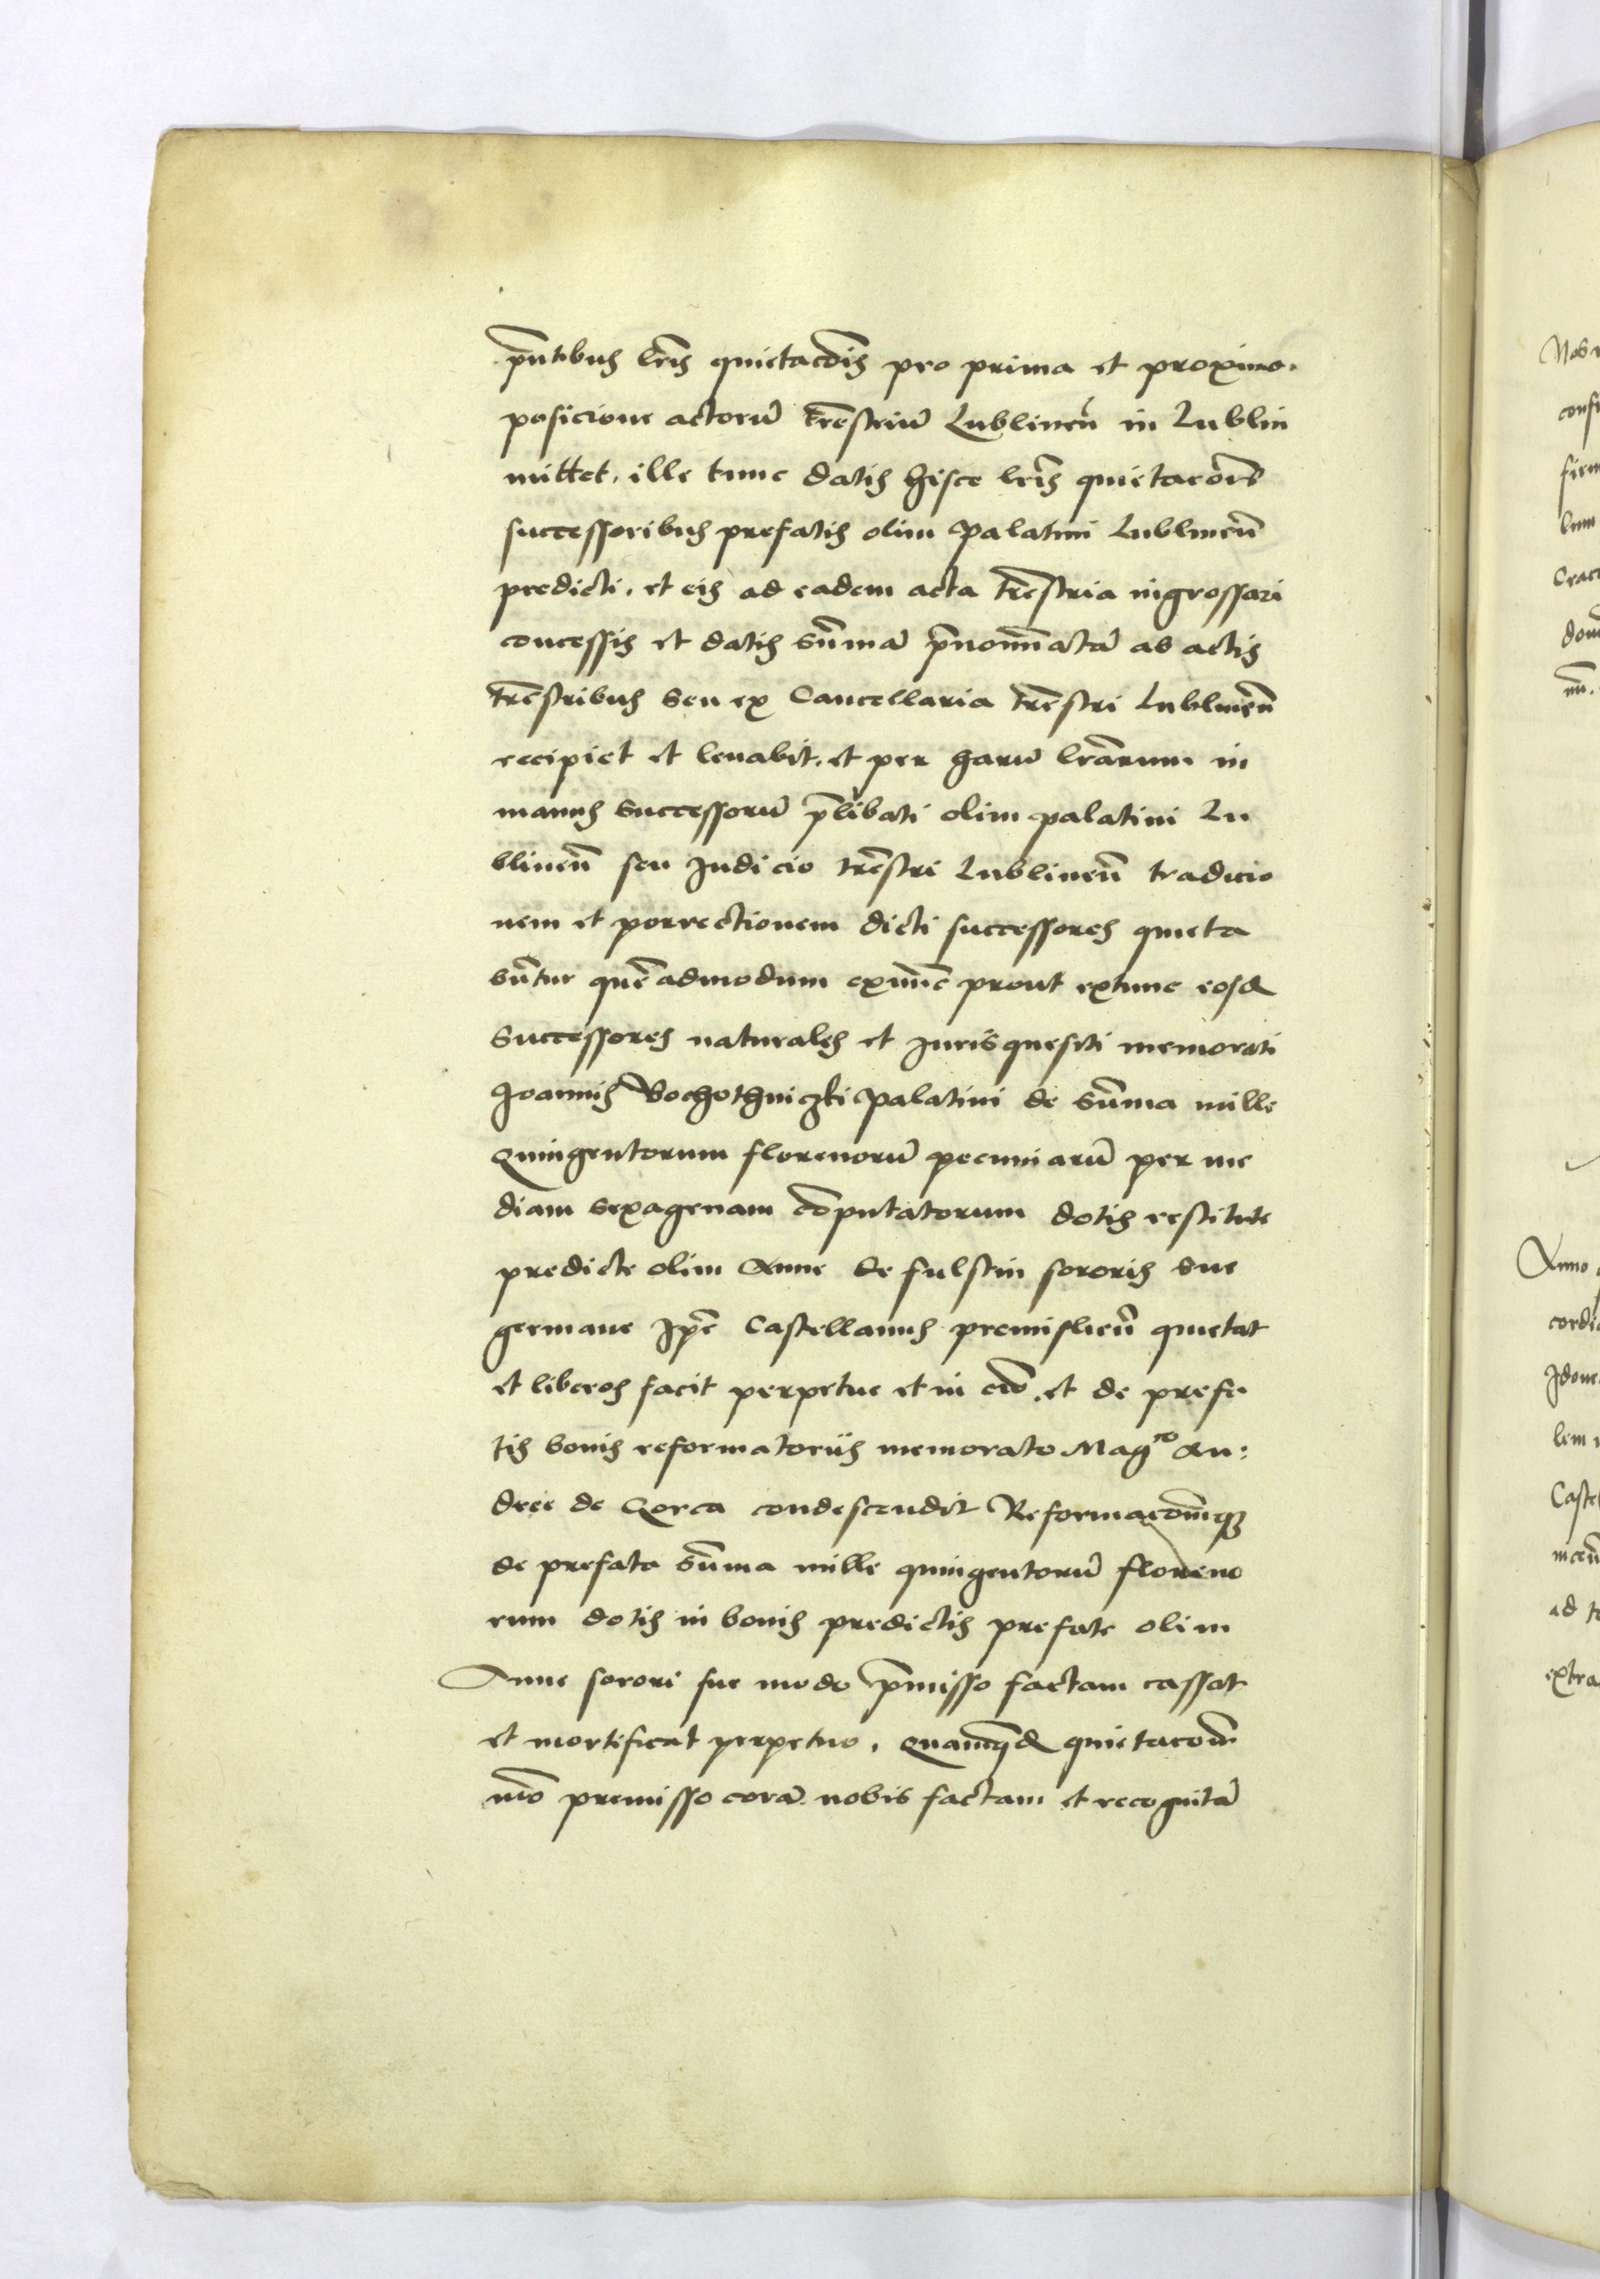 p̄ntibus l̄ris quietac̄ōis pro prima et proxima
posicione actorū tr̄estriū Lublineñ in Lublin
mittet, ille tunc datis hisce l̄ris quietac̄ōis
successoribus prefatis olim palatini Lublineñ
predicti, et eis ad eadem acta tr̄estria ingrossari
concessis et datis sūmā p̄nominatā ab actis
tr̄estribus seu ex Cancellaria tr̄estri Lublineñ
recipiet et levabit, et per harū l̄rarum in
manus successorū p̄libati olim palatini Lu
blineñ seu Judicio tr̄estri Lublineñ tradicio
nem et porrectionem dicti successores quieta
būtur quēadmodum exnūc prout extunc eosd
successores naturales et Jurisquesiti memorati
Joannis Bochothniczki palatini de sūma mille
Quingentorum florenorū pecuniarū per me
diam sexagenam cōputatorum dotis restitute
predicte olim Anne de fulstin sororis sue
germane Ip̄e Castellanus premislieñ quietat
et liberos facit perpetue et in evō, et de prefa
tis bonis reformatoriis memorato Mag^co An:
dree de Gorca condescendit Reformac̄ōmq3
de prefata sūma mille quingentorū floreno
rum dotis in bonis predictis prefate olim
Anne sorori sue modo p̄misso factam cassat
et mortificat perpetuo, Quamq̄d quietac̄ōēm
mō premisso corā nobis factam et recognitā
Anno